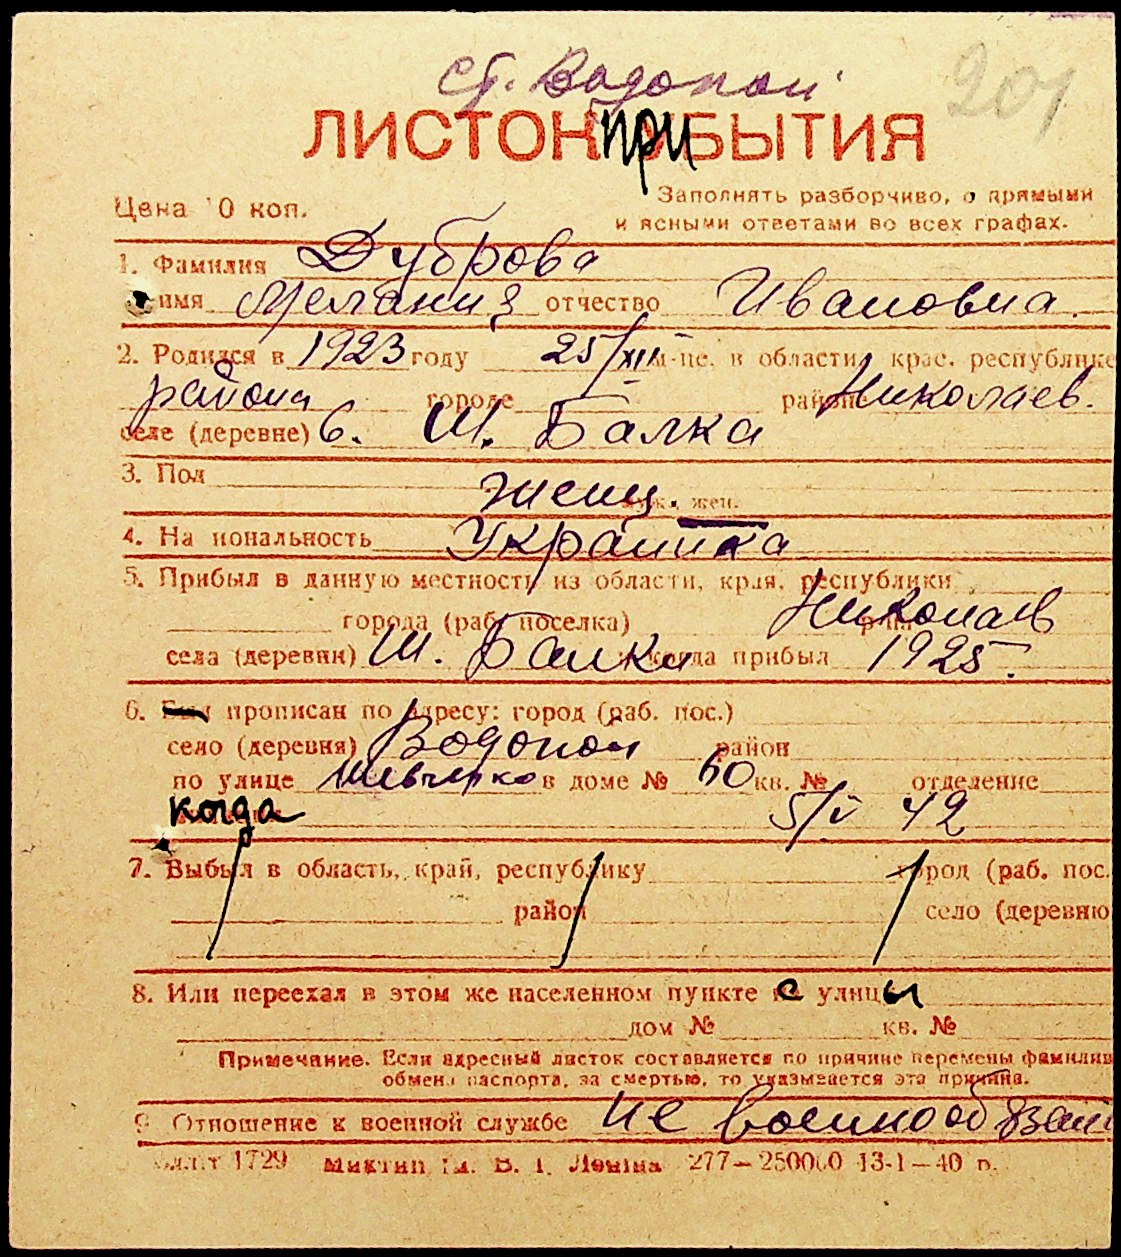 ст. Водопой
201
ЛИСТОК ПРИБЫТИЯ
Цена 10 коп.
Заполнять разборчиво, с прямыми
и ясными ответами во всех графах.
1. Фамилия Дуброва
имя Мелания отчество Ивановна
2. Родился в 1923 году 25/XII м-це, в области, крае, республике
района городе районе Николаев.
селе (деревне) с. Ш. Балка
3. Пол женщ. муж., жен.
4. Национальность Украинка
5. Прибыл в данную местность из области, края, республики
города (раб. поселка) района Николаев
села (деревни) Ш. Балка когда прибыл 1925.
6. Был прописан по адресу: город (раб. пос.)
село (деревня) Водопой район
по улице Шевченко в доме № 60 кв. № отделение
когда 5/V 42
7. Выбыл в область, край, республику город (раб. пос.
район село (деревню
8. Или переехал в этом же населенном пункте с улицы
дом № кв. №
Примечание. Если адресный листок составляется по причине перемены фамилии
обмена паспорта, за смертью, то указывается эта причина.
9. Отношение к военной службе не военнообязан
1729 277—250000 13-1—40 р.